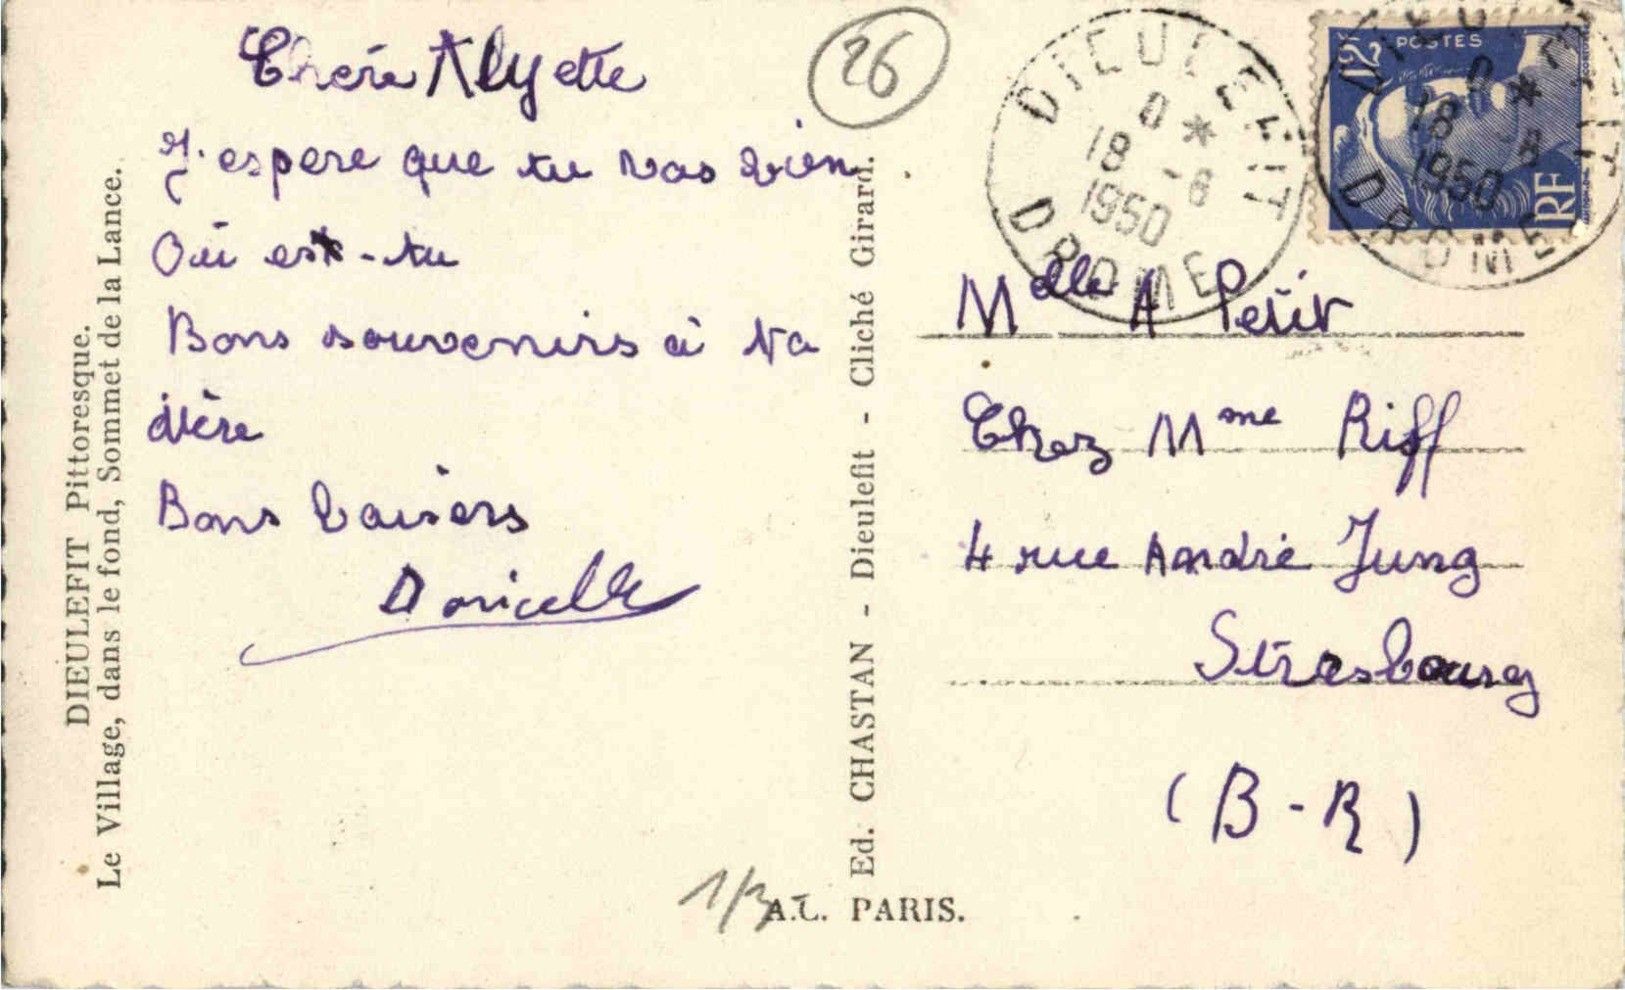 Chère Alyette
J'espere que tu vas bien
Où est-tu
Bons souvenirs à ta
Mère
Bons baisers
26
DIEULEFIT Pittoresque.
Le Village, dans le fond, Sommet de la Lance.
Ed. CHASTAN - Dieulefit - Cliché Girard.
1/3
A.L. PARIS.
DIEULEFIT
18 -8
1950
DROME
12F POSTES
RF
DIEULEFIT
18 -8
1950
DROME
Mdelle A Petit
Chez Mme Riff
4 rue André Jung
Strasbourg
(B-R)